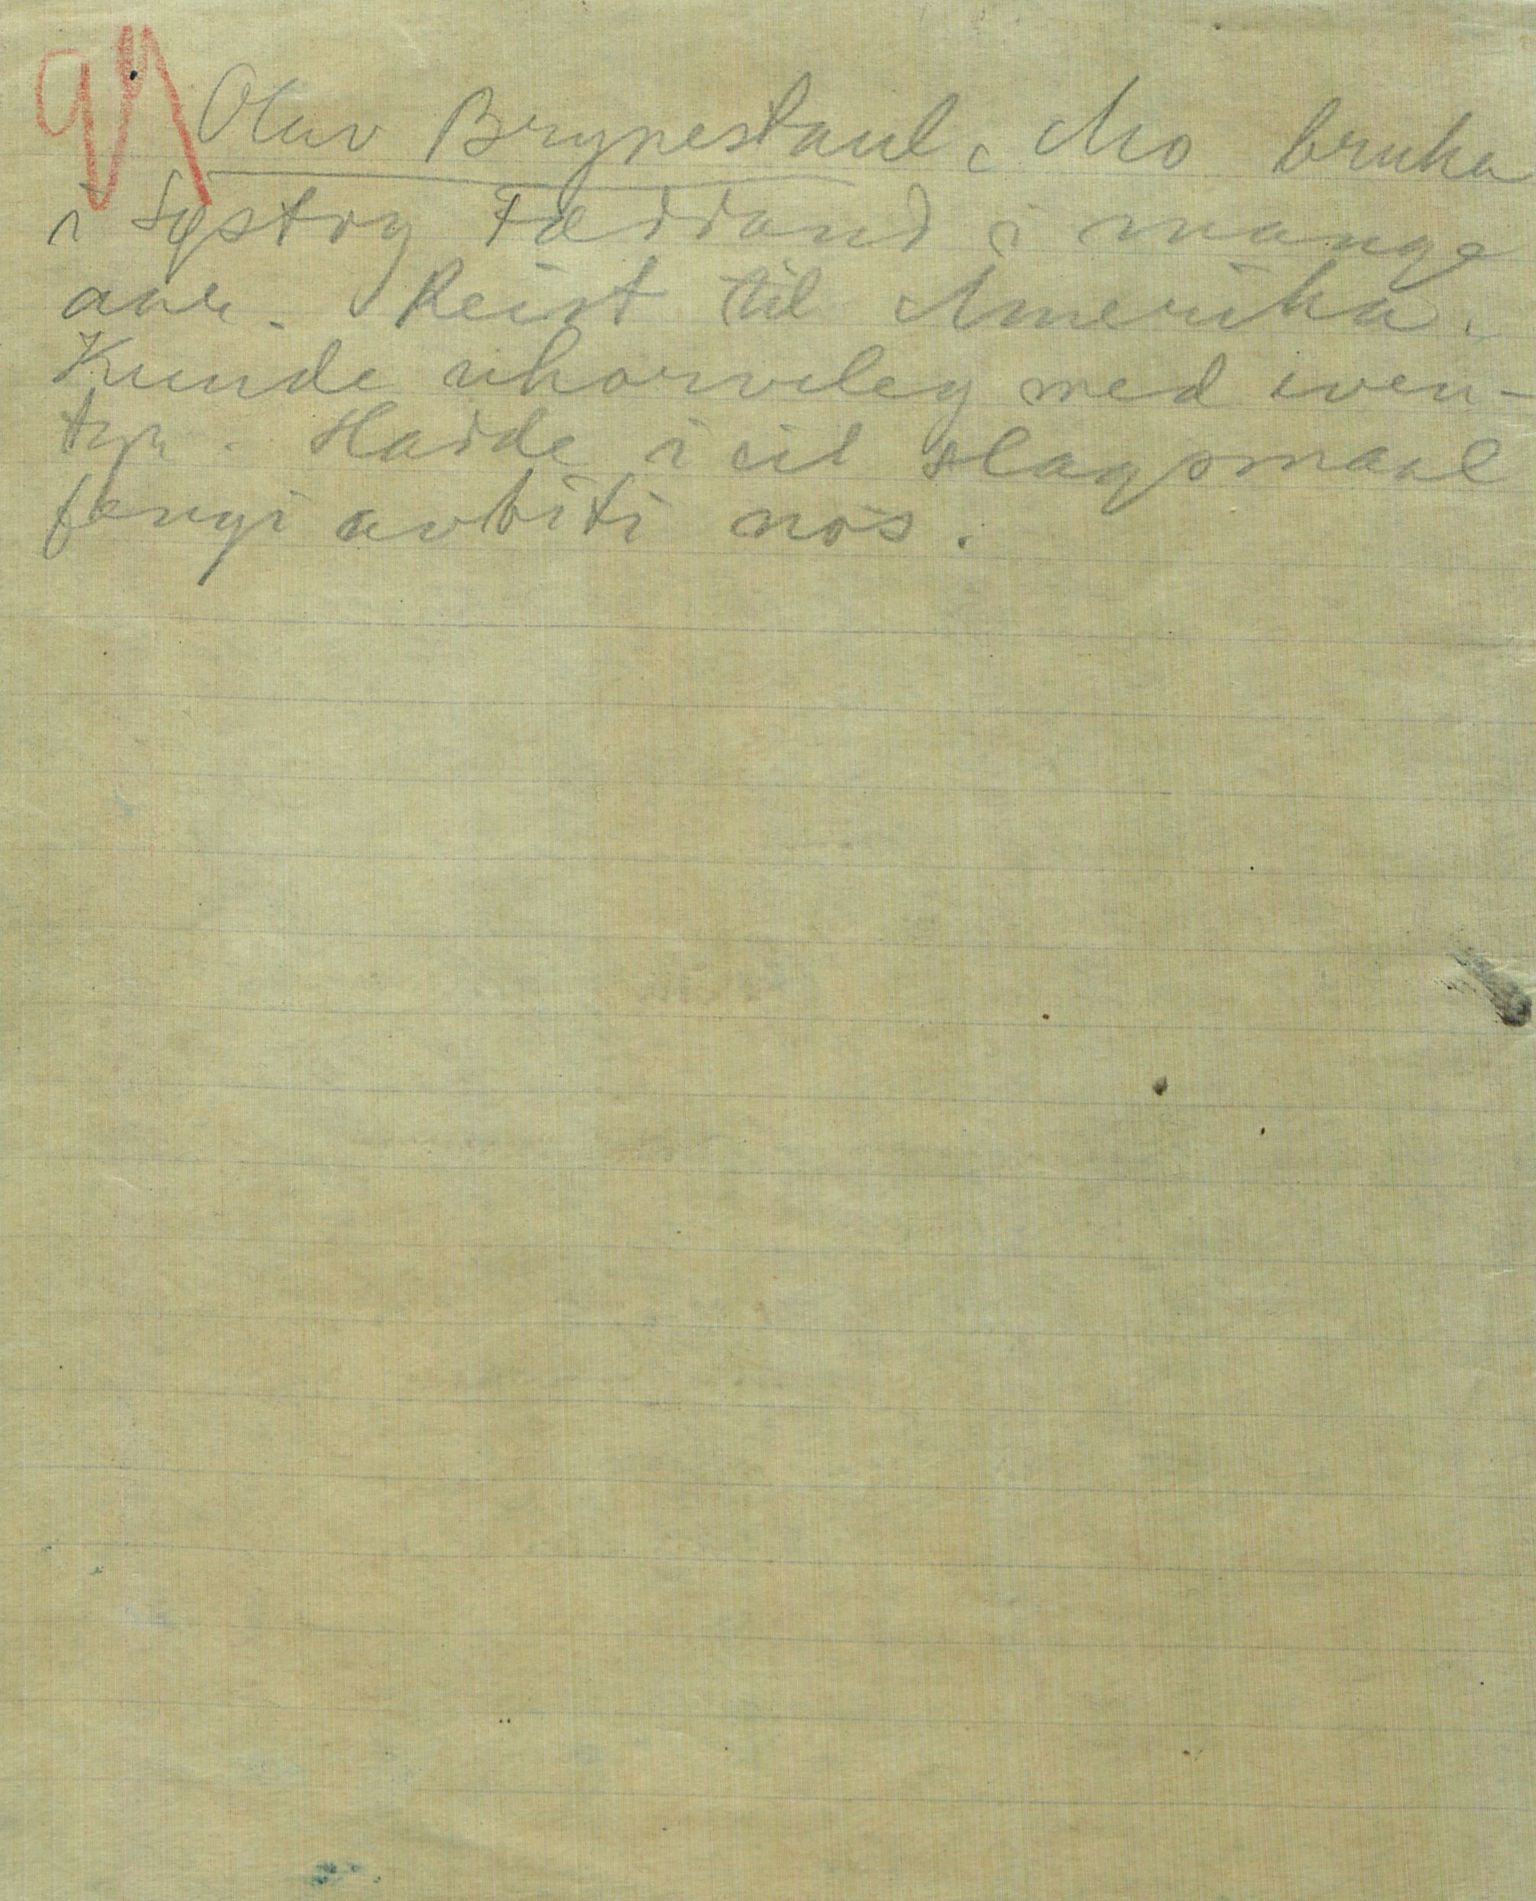 97
Olav Brynestaul, Mo bruka
i Systog Fæddand i mange
aar. Reist til Amerika.
Kunde uhorveleg med even-
tyr. Hadde i eit slagsmaal
fengi avbiti nos.